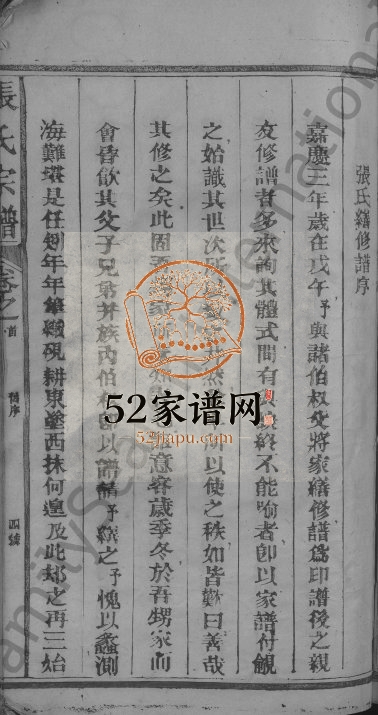 張氏繕修譜序
嘉慶三年歲在戊午予與諸伯叔父將家繕修譜為印譜後之親
友修譜者多來詢其體式間有終不能喻者卽以家譜付覩
之始識其世次所以使之秩如皆歎曰善哉
其修之矣此固意客歲季冬於吾甥家而
會昝欲其父子兄弟并族內伯以譜請予繕之予愧以蠡測
海難堪是任刱年年筆礙硯耕東塗西抹何遑及此却之再三始
張氏宗譜
卷之首
譜序
四
52家谱网
52jiapu.com
FamilySearch International